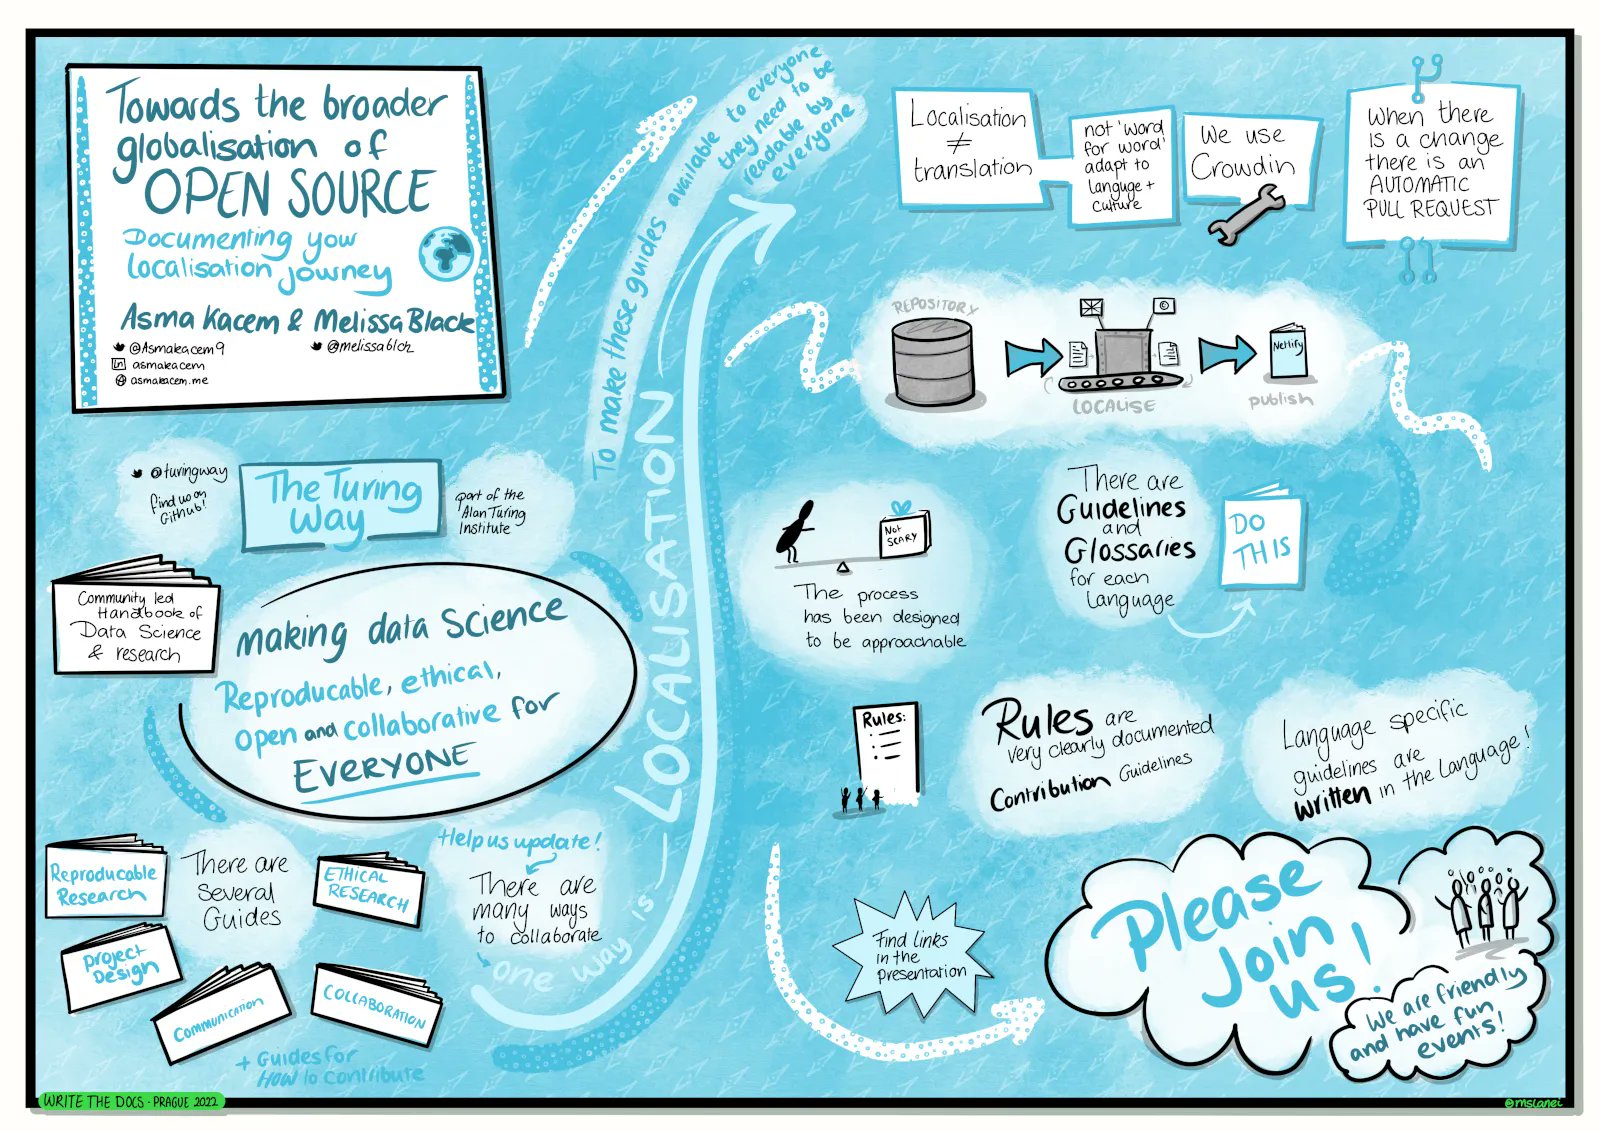 Towards the broader
globalisation of
OPEN SOURCE
Documenting your
localisation journey
Asma Kacem & Melissa Black
@Asmakacem9
@melissablck
in asmakacem
asmakacem.me
@turingway
find us on
Github!
The Turing
Way
part of the
Alan Turing
Institute
Community led
Handbook of
Data Science
& research
making data science
Reproducable, ethical,
open and collaborative for
EVERYONE
Reproducable
Research
There are
several
Guides
ETHICAL
RESEARCH
Project
Design
Communication
COLLABORATION
+ Guides for
How to contribute
Help us update!
There are
many ways
to collaborate
one way is
LOCALISATION
To make these guides available to everyone
they need to be
readable by
everyone
Localisation
≠
translation
not 'word
for word'
adapt to
languge +
culture
We use
Crowdin
When there
is a change
there is an
AUTOMATIC
PULL REQUEST
REPOSITORY
LOCALISE
Netlify
publish
NOT
SCARY
The process
has been designed
to be approachable
There are
Guidelines
and
Glossaries
for each
language
DO
THIS
Rules:
Rules are
very clearly documented
Contribution Guidelines
Language specific
guidelines are
written in the language!
Find links
in the
presentation
Please
Join
us!
We are friendly
and have fun
events!
WRITE THE DOCS · PRAGUE 2022
@mslanei